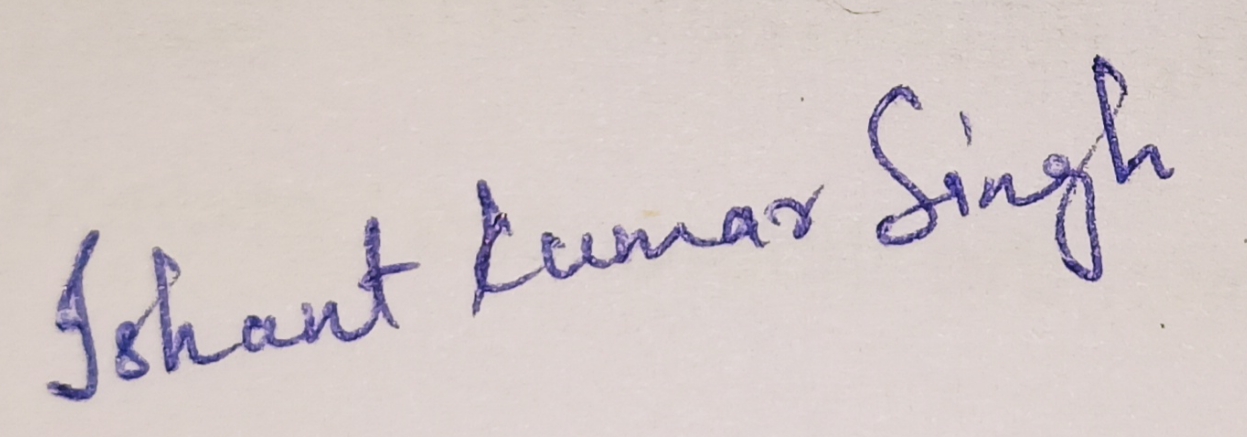 Ishant Kumar Singh